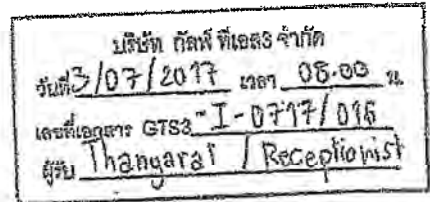 บริษัท กัลฟ์ ทีเอส3 จำกัด
วันที่ 3/07/2017 เวลา 08.00 น.
เลขที่เอกสาร GTS3-I-0717/016
ผู้รับ Thangarat / Receptionist